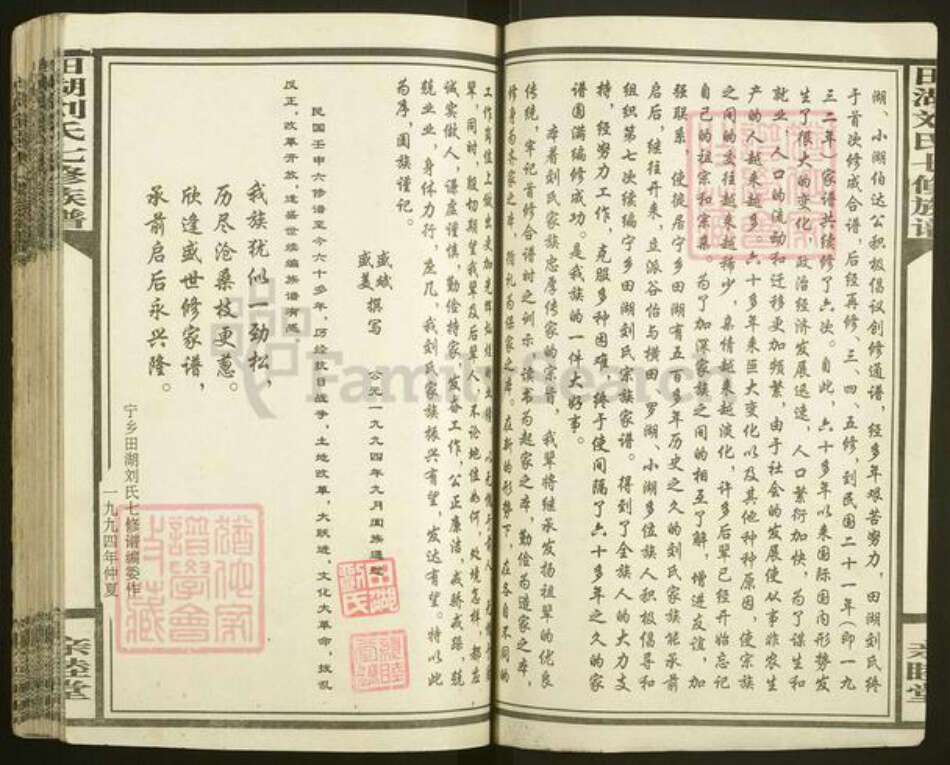 田湖刘氏七修族谱
亲睦堂
湖、小湖伯达公积极倡议创修通谱，经多年艰苦努力，田湖刘氏终
于首次修成合谱，后经再修、三、四、五修，到民国二十一年（即一九
三二年）家谱共续修了六次。自此，六十多年以来国际国内形势发
生了很大的变化，政治经济发展迅速，人口繁衍加快，为了谋生和
就业，人口的流动和迁移更加频繁，由于社会的发展使从事非农生
产的人越来越多。六十多年来巨大变化以及其他种种原因，使宗族
之间的交往越来越稀少，亲情越来越淡化，许多后辈已经开始忘记
自己的祖宗和宗亲。为了加深家族之间的相互了解，增进友谊，加
强联系，使掟居宁乡田湖有五百多年历史之久的刘氏家族能承前
启后，继往开来，立派谷怡与横田、罗湖、小湖多位族人积极倡导和
组织第七次续编宁乡田湖刘氏宗族家谱。得到了全族人的大力支
持，经努力工作，克服多种困难，终于使间隔了六十多年之久的家
谱圆满编修成功。是我族的一件大好事。
本着刘氏家族忠厚传家的宗旨，我辈将继承发扬祖辈的优良
传统，牢记首修合谱时之训示：读书为起家之本，勤俭为造家之本，
修身为齐家之本，循礼为保家之本。在新的形势下，在各自不同的
工作岗位上做出更加光辉灿烂
辈，同时，殷切期望我辈及后辈人，不论地位如何，处境怎样，都应
诚实做人，谦虚谨慎，勤俭持家，发奋工作，公正廉洁，戒骄戒躁，兢
兢业业，身体力行，庶几，我刘氏家族振兴有望，发达有望。特以此
为序，阖族谨记。
盛斌
盛美 撰写 公元一九九四年九月阖族通
民国壬申六修谱至今六十多年，历经抗日战争，土地改革，大跃进，文化大革命，拨乱
反正，改革开放，逢盛世续编族谱有感。
我族犹似一劲松，
历尽沧桑枝更蔥。
欣逢盛世修家谱，
承前启后永兴隆。
宁乡田湖刘氏七修谱编委作
一九九四年仲夏
田湖刘氏七修族谱
亲睦堂
田湖劉氏
譜學會
FamilySearch